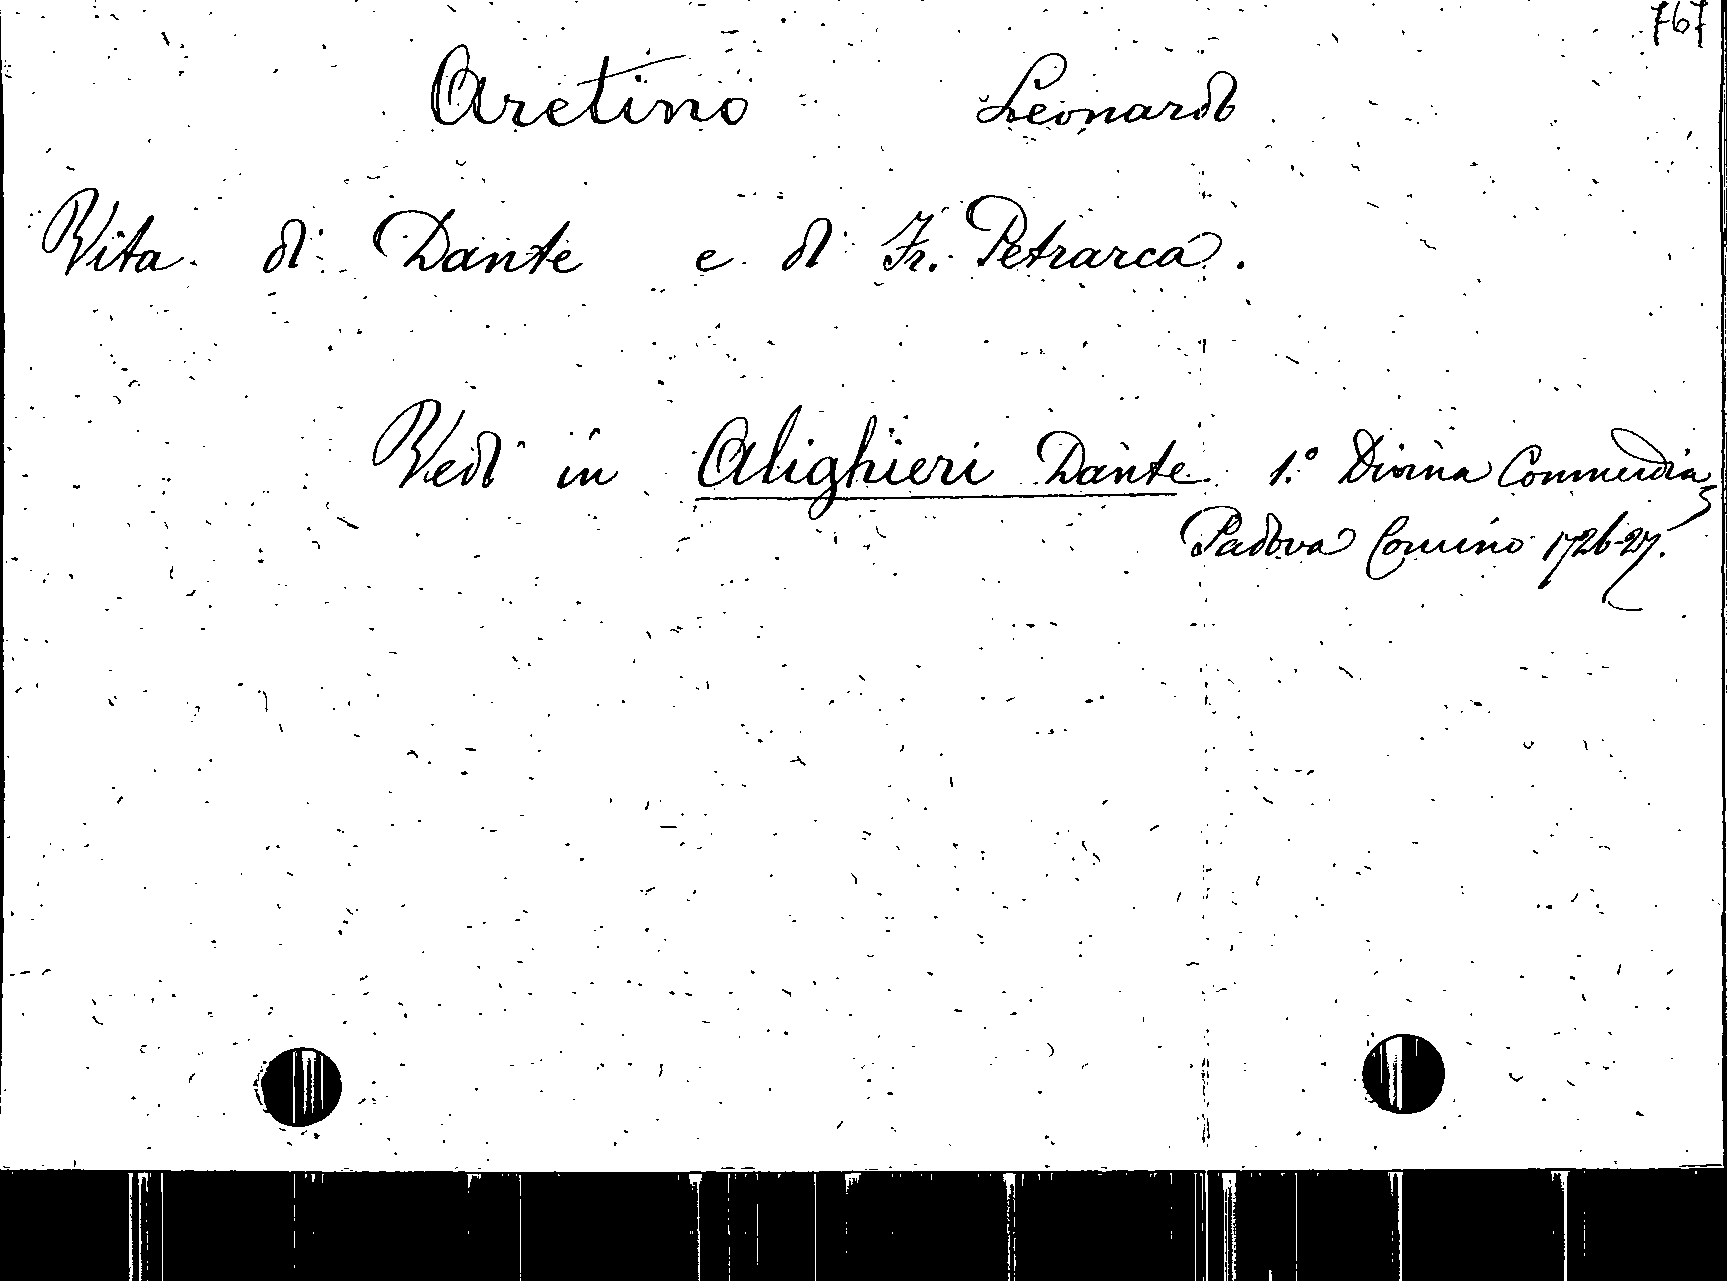 767
Aretino Leonardo
Vita di Dante e di Fr. Petrarca.
Vedi in Alighieri Dante 1.° Divina Commedia,
Padova Comino 1726-27.